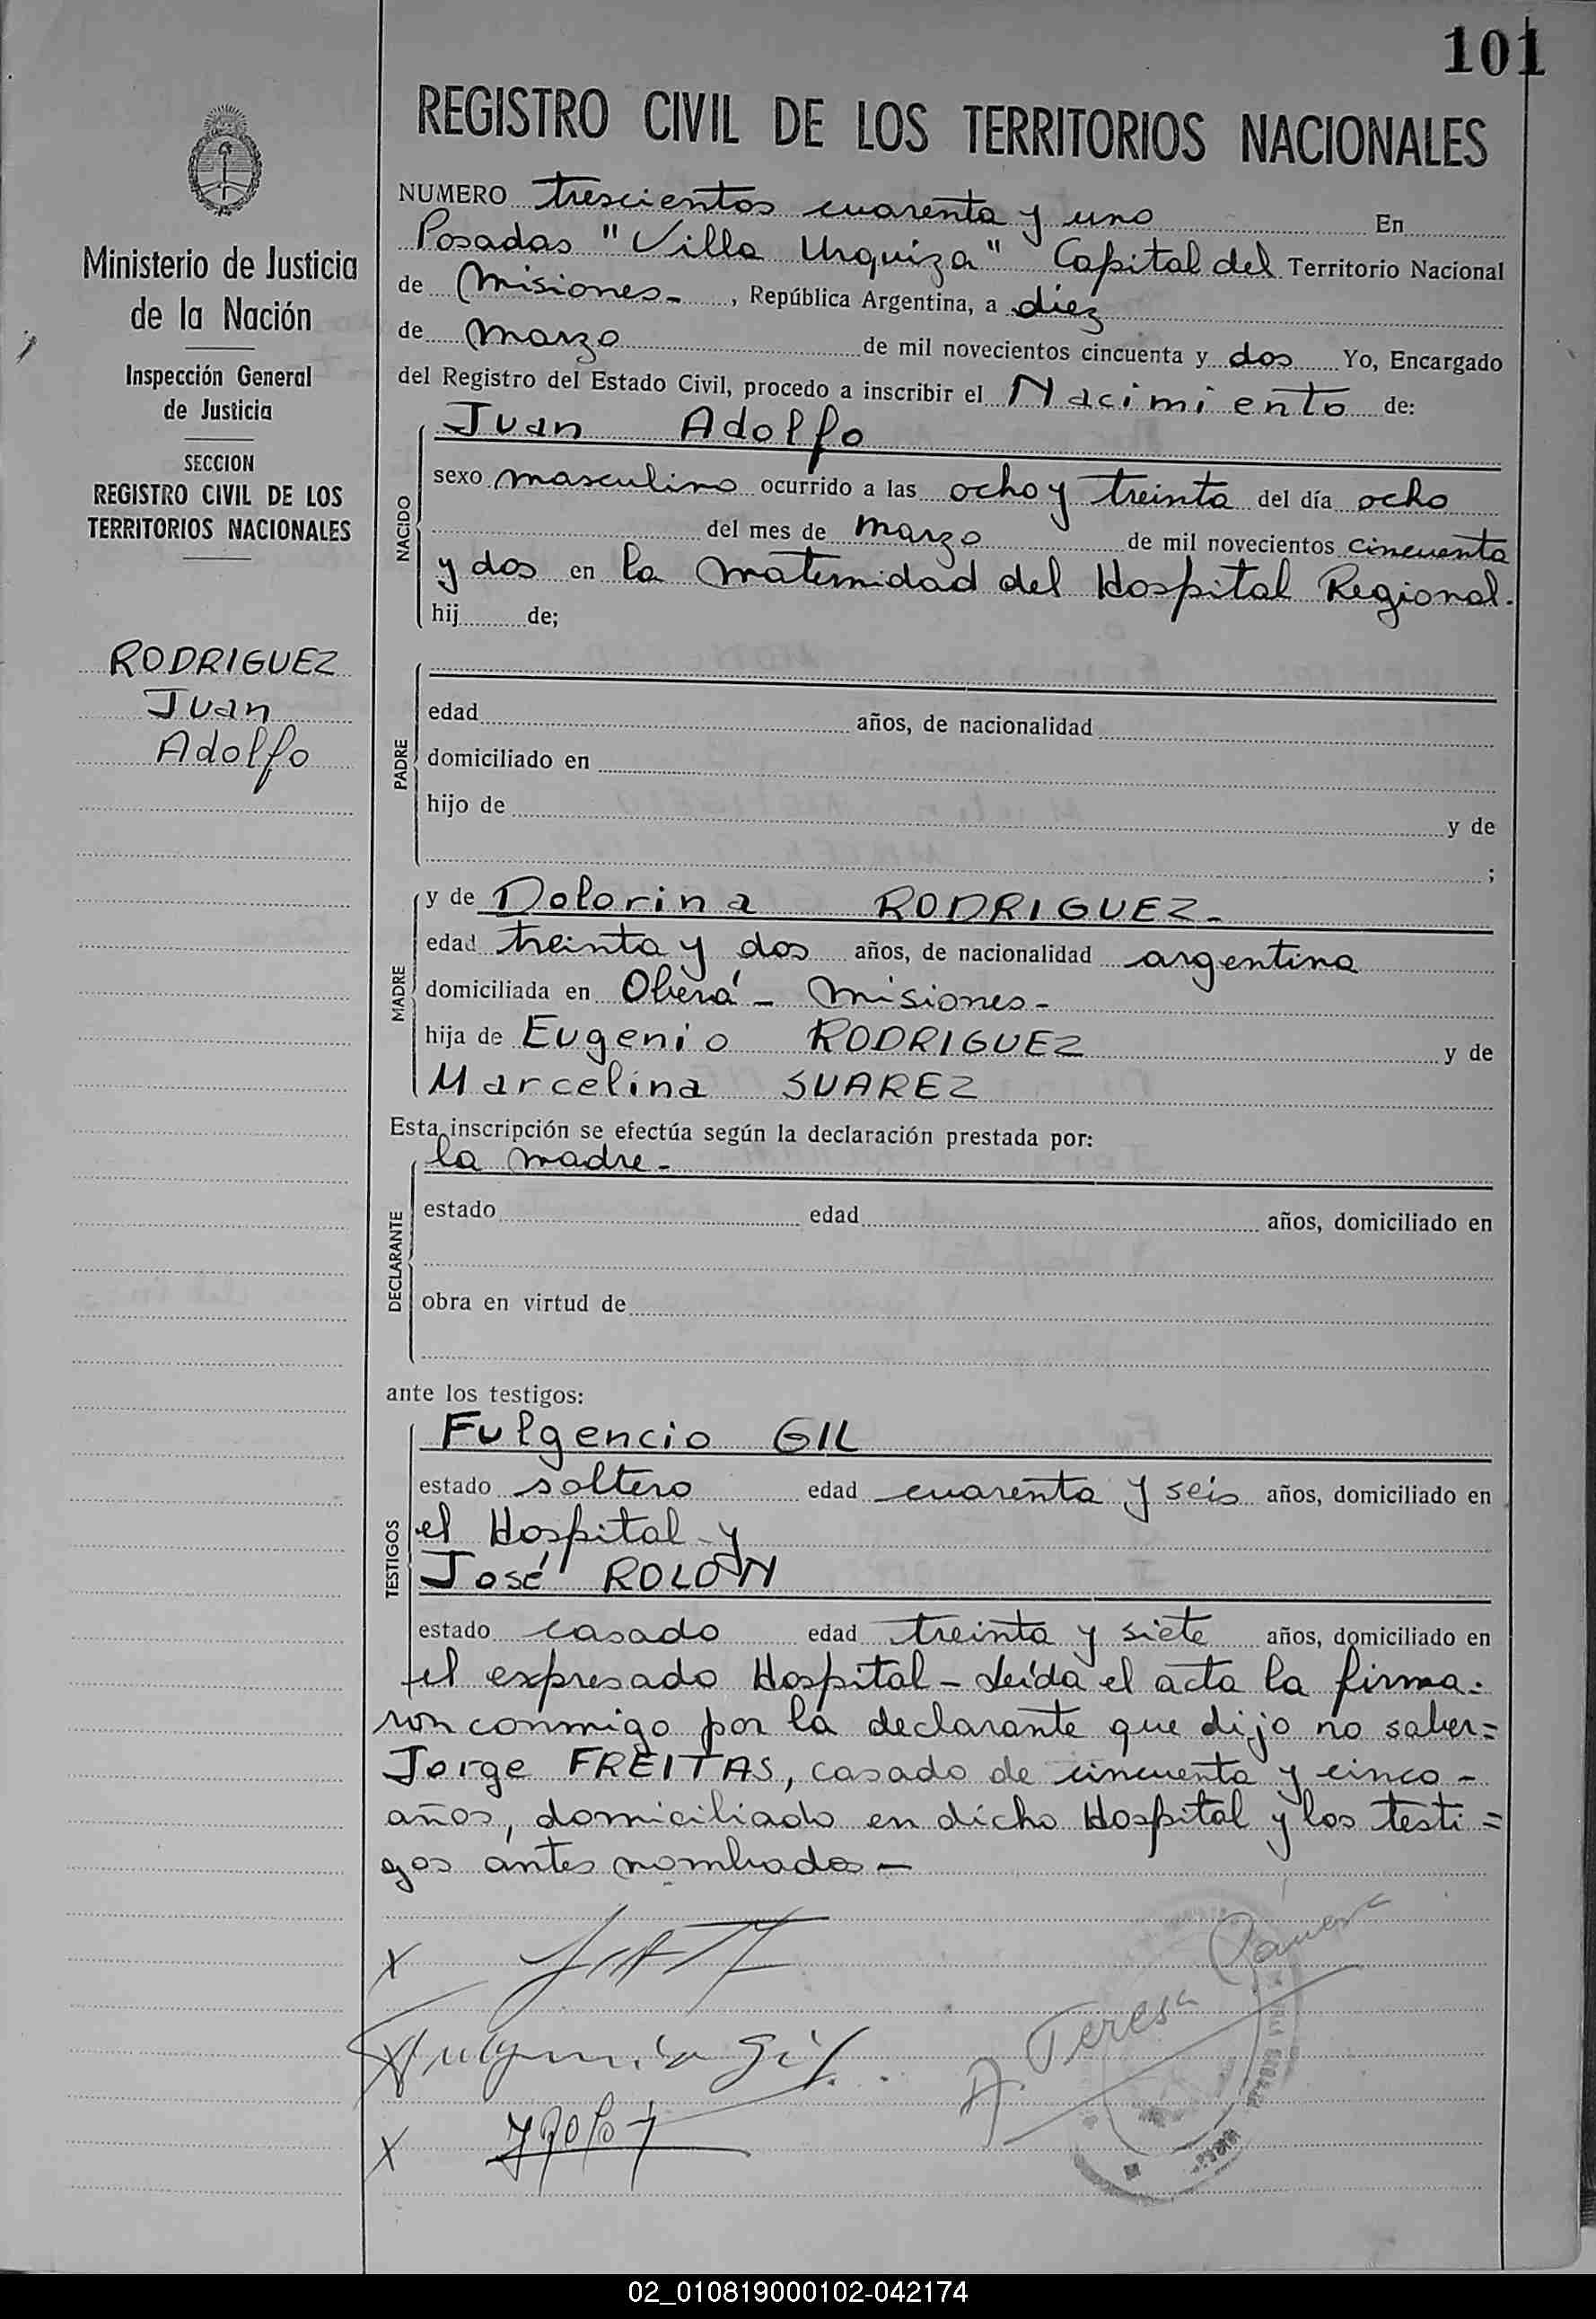 101
REGISTRO CIVIL DE LOS TERRITORIOS NACIONALES
Ministerio de Justicia
de la Nación
Inspección General
de Justicia
SECCION
REGISTRO CIVIL DE LOS
TERRITORIOS NACIONALES
RODRIGUEZ
Juan
Adolfo
NUMERO trescientos cuarenta y uno En
Posadas "Villa Urquiza" Capital del Territorio Nacional
de Misiones-, República Argentina, a diez
de Marzo de mil novecientos cincuenta y dos Yo, Encargado
del Registro del Estado Civil, procedo a inscribir el Nacimiento de:
NACIDO
Juan Adolfo
sexo masculino ocurrido a las ocho y treinta del día ocho
del mes de Marzo de mil novecientos cincuenta
y dos en la Maternidad del Hospital Regional.
hij de;
PADRE
edad años, de nacionalidad
domiciliado en
hijo de y de
;
MADRE
y de Dolorina RODRIGUEZ-
edad treinta y dos años, de nacionalidad argentina
domiciliada en Oberá - Misiones-
hija de Eugenio RODRIGUEZ y de
Marcelina SUAREZ
Esta inscripción se efectúa según la declaración prestada por:
DECLARANTE
la madre-
estado edad años, domiciliado en
obra en virtud de
ante los testigos:
TESTIGOS
Fulgencio GIL
estado soltero edad cuarenta y seis años, domiciliado en
el Hospital y
José ROLON
estado casado edad treinta y siete años, domiciliado en
el expresado Hospital - Leída el acta la firma-
ron conmigo por la declarante que dijo no saber=
Jorge FREITAS, casado de cincuenta y cinco -
años, domiciliado en dicho Hospital y los testi=
gos antes nombrados -
X
X Fulgencio Gil.
A. Teresa
X
02_010819000102-042174